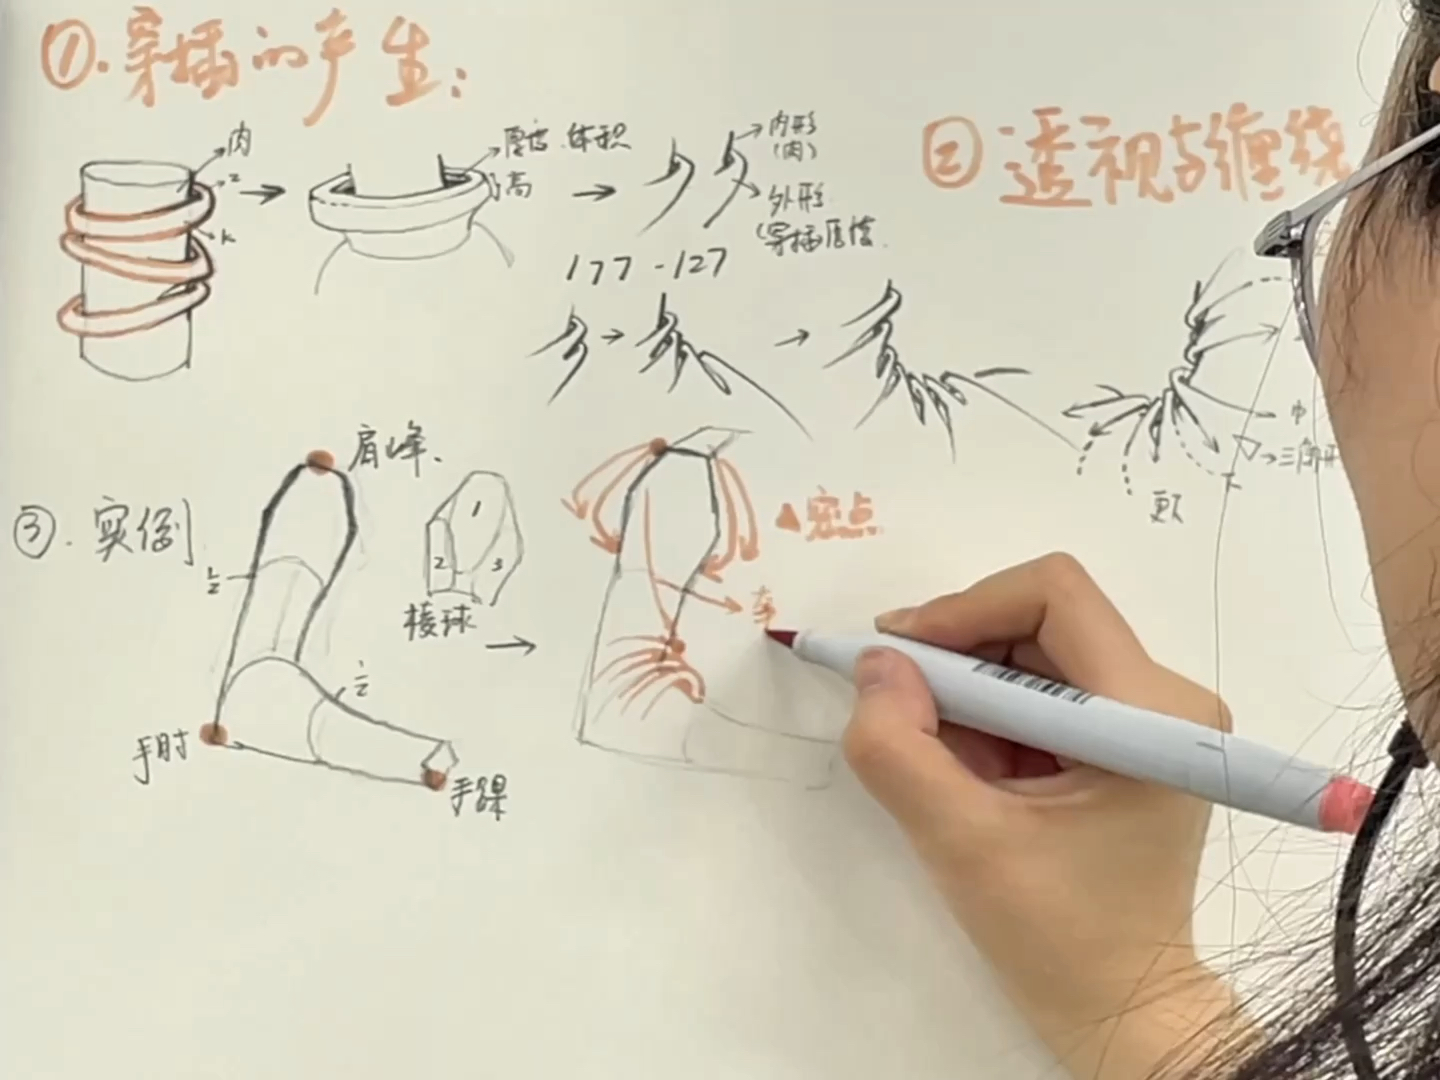 ①.穿插的产生:
内
z
k
厚度.体积
高
内形
(肉)
外形
(穿插厚度.
177-127
②透视与缠绕
中
下
▽→三角形
③.实例
肩峰.
1/2
1
2
3
棱球
1/2
手肘
手踝
▲密点